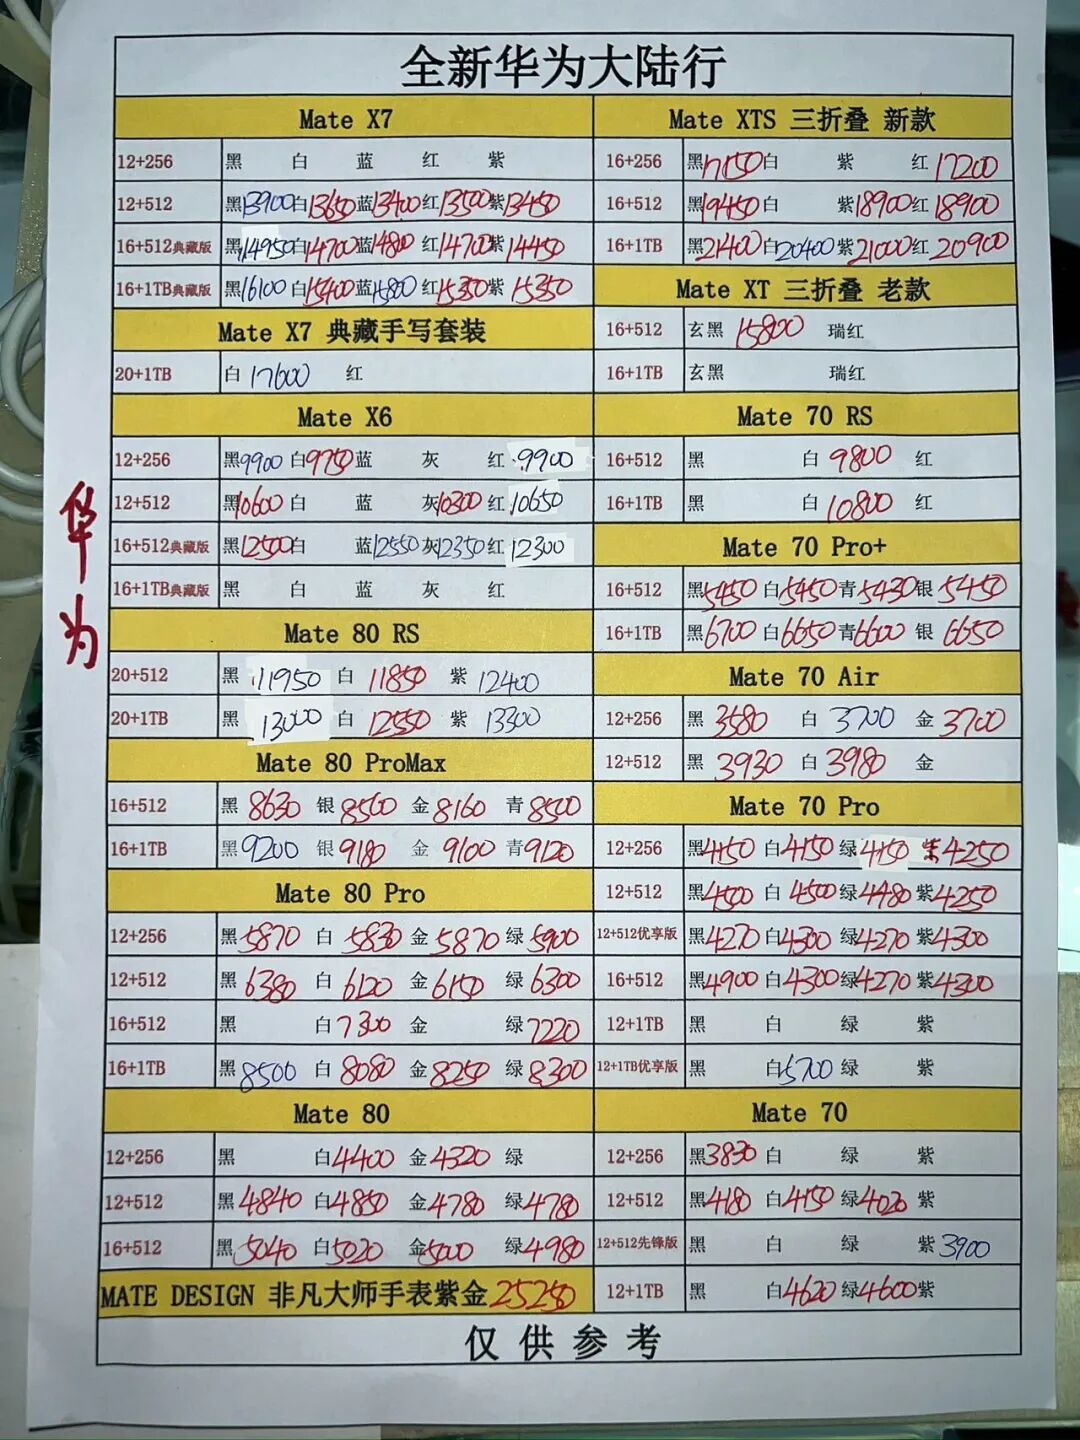 全新华为大陆行
华为
Mate X7
12+256 黑 白 蓝 红 紫
12+512 黑13900 白13650 蓝13400 红13500 紫13450
16+512典藏版 黑14950 白14700 蓝14800 红14700 紫14450
16+1TB典藏版 黑16100 白15400 蓝15800 红15350 紫15350
Mate X7 典藏手写套装
20+1TB 白17600 红
Mate X6
12+256 黑9900 白9750 蓝 灰 红9900
12+512 黑10600 白 蓝 灰10300 红10650
16+512典藏版 黑12500 白 蓝12550 灰12350 红12300
16+1TB典藏版 黑 白 蓝 灰 红
Mate 80 RS
20+512 黑11950 白11850 紫12400
20+1TB 黑13000 白12550 紫13300
Mate 80 ProMax
16+512 黑8630 银8560 金8160 青8500
16+1TB 黑9200 银9180 金9100 青9120
Mate 80 Pro
12+256 黑5870 白5830 金5870 绿5900
12+512 黑6380 白6120 金6150 绿6300
16+512 黑 白7300 金 绿7220
16+1TB 黑8500 白8080 金8250 绿8300
Mate 80
12+256 黑 白4400 金4320 绿
12+512 黑4840 白4850 金4780 绿4780
16+512 黑5040 白5020 金5000 绿4980
MATE DESIGN 非凡大师手表紫金25250
Mate XTS 三折叠 新款
16+256 黑17150 白 紫 红17200
16+512 黑19450 白 紫18900 红18900
16+1TB 黑21400 白20400 紫21000 红20900
Mate XT 三折叠 老款
16+512 玄黑15800 瑞红
16+1TB 玄黑 瑞红
Mate 70 RS
16+512 黑 白9800 红
16+1TB 黑 白10800 红
Mate 70 Pro+
16+512 黑5450 白5450 青5430 银5450
16+1TB 黑6700 白6650 青6600 银6650
Mate 70 Air
12+256 黑3580 白3700 金3700
12+512 黑3930 白3980 金
Mate 70 Pro
12+256 黑4150 白4150 绿4150 紫4250
12+512 黑4500 白4500 绿4480 紫4250
12+512优享版 黑4270 白4300 绿4270 紫4300
16+512 黑4900 白4300 绿4270 紫4300
12+1TB 黑 白 绿 紫
12+1TB优享版 黑 白5700 绿 紫
Mate 70
12+256 黑3830 白 绿 紫
12+512 黑4180 白4150 绿4020 紫
12+512先锋版 黑 白 绿 紫3900
12+1TB 黑 白4620 绿4600 紫
仅供参考